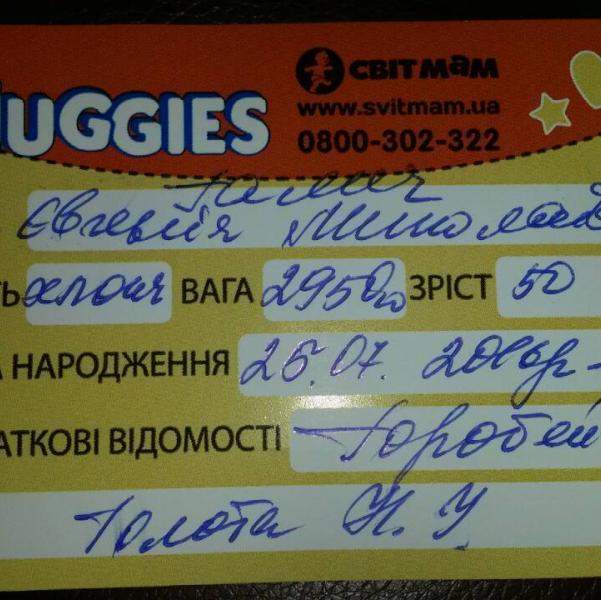 HUGGIES
СВІТ МАМ
www.svitmam.ua
0800-302-322
Галич
Євгенія Миколаї
ТЬ хлопч ВАГА 2950 ЗРІСТ 50
А НАРОДЖЕННЯ 26.07. 2016р
АТКОВІ ВІДОМОСТІ Горобей
Толота Н. У